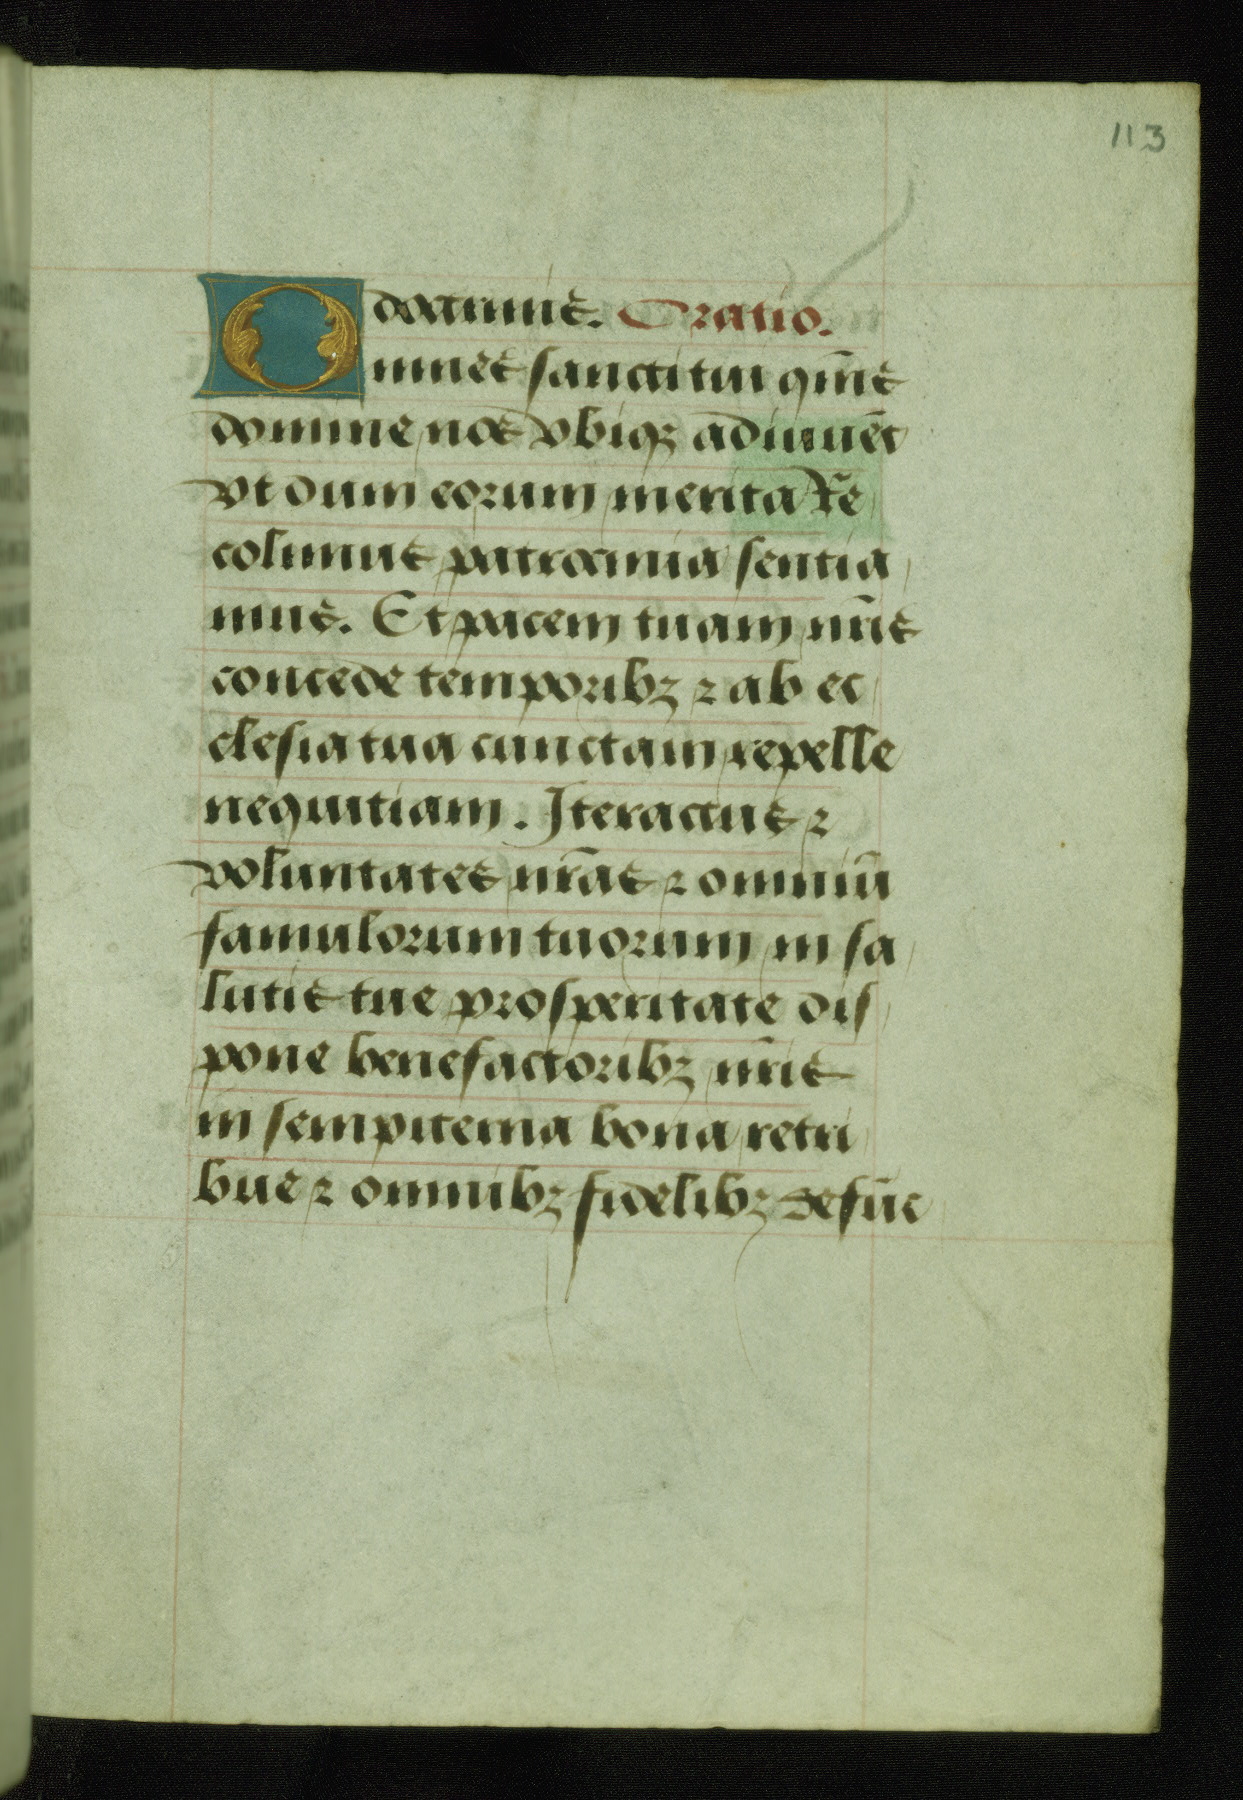 113
doctrinis. Oratio.
Omnes sancti tui qm̄s
domine nos vbiq3 adiuuēt
vt dum eorum merita Re
colimus patrocinia sentia
mus. Et pacem tuam nr̄is
concede temporib3 ⁊ ab ec
clesia tua cunctam repelle
nequitiam. Iter actus ⁊
voluntates nr̄as ⁊ omniū
famulorum tuorum in sa
lutis tue prosperitate dis
pone benefactorib3 nr̄is
in sempiterna bona retri
bue ⁊ omnib3 fidelib3 defūc